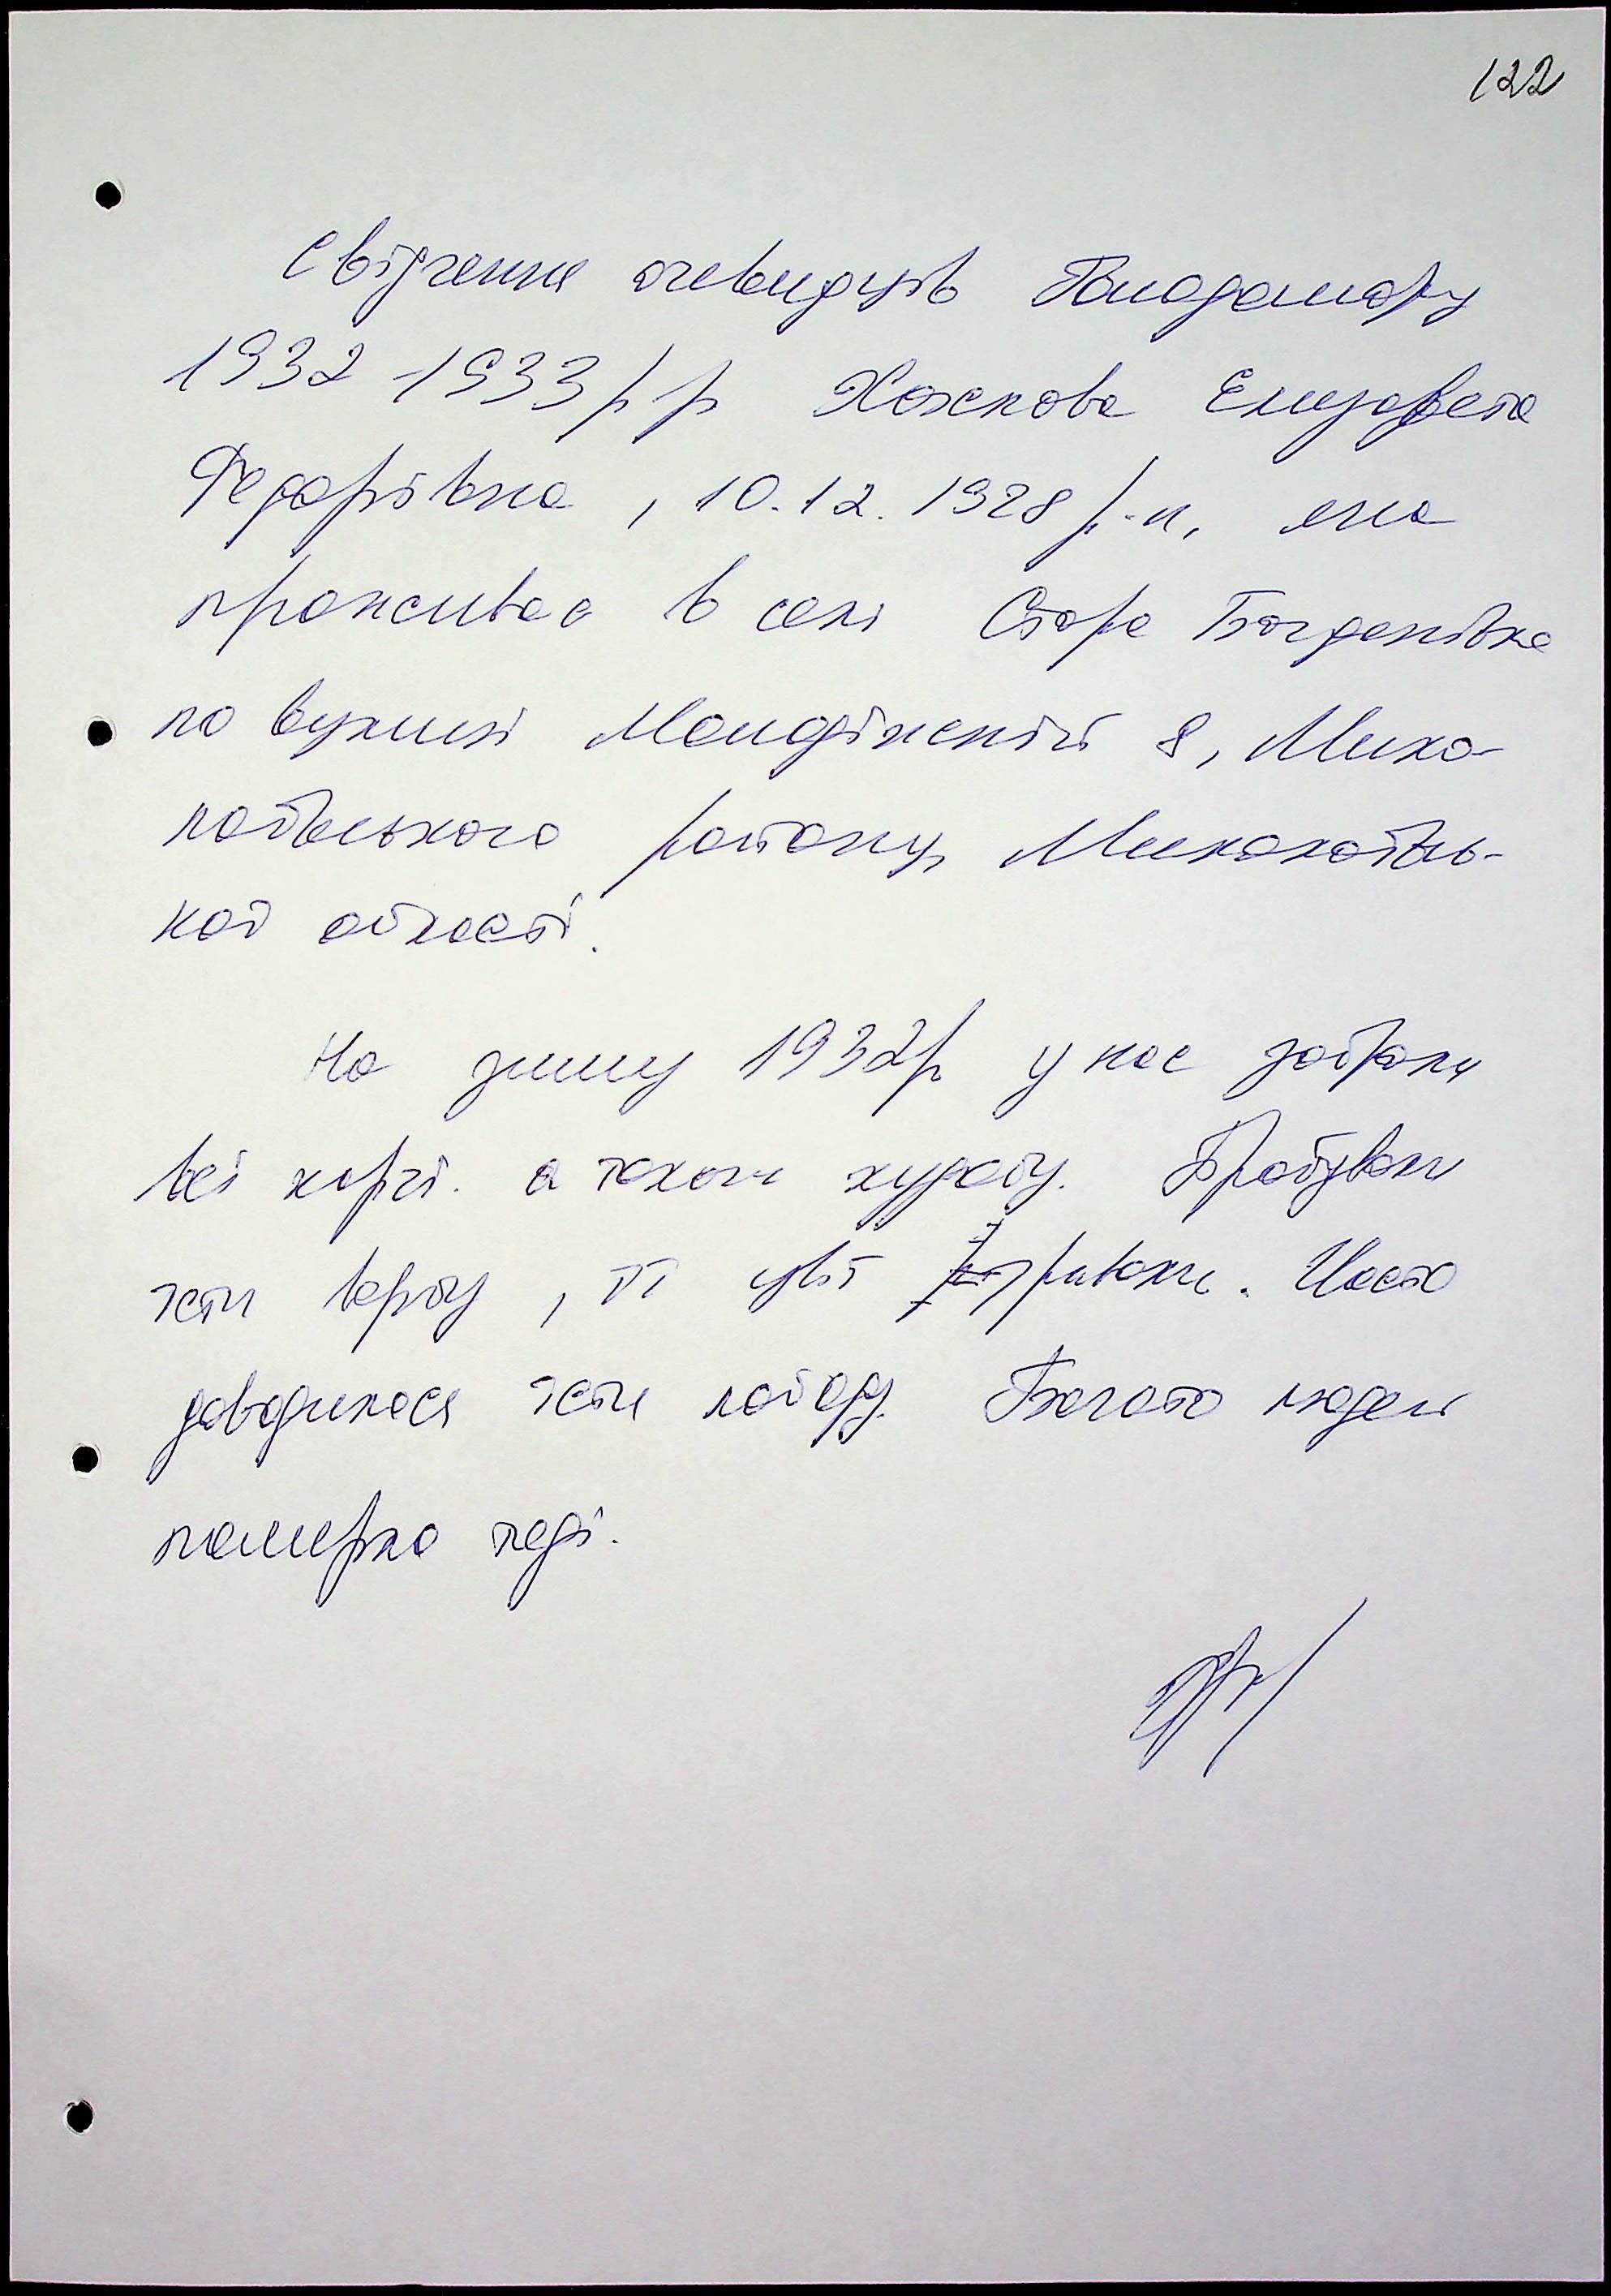 122
Свідчення очевидців Голодомору
1932-1933 рр Хожкова Елизавета
Федорівна, 10.12.1928 р.н, яка
проживає в селі Стара Богданівка
по вулиці Молодіжній 8, Мико-
лаївського району, Миколаївсь-
кої області.
На зиму 1932р у нас забрали
всі харчі. а також худобу. Пробували
їсти вербу, її цвіт зривали. Часто
доводилося їсти лободу. Багато людей
померло тоді.